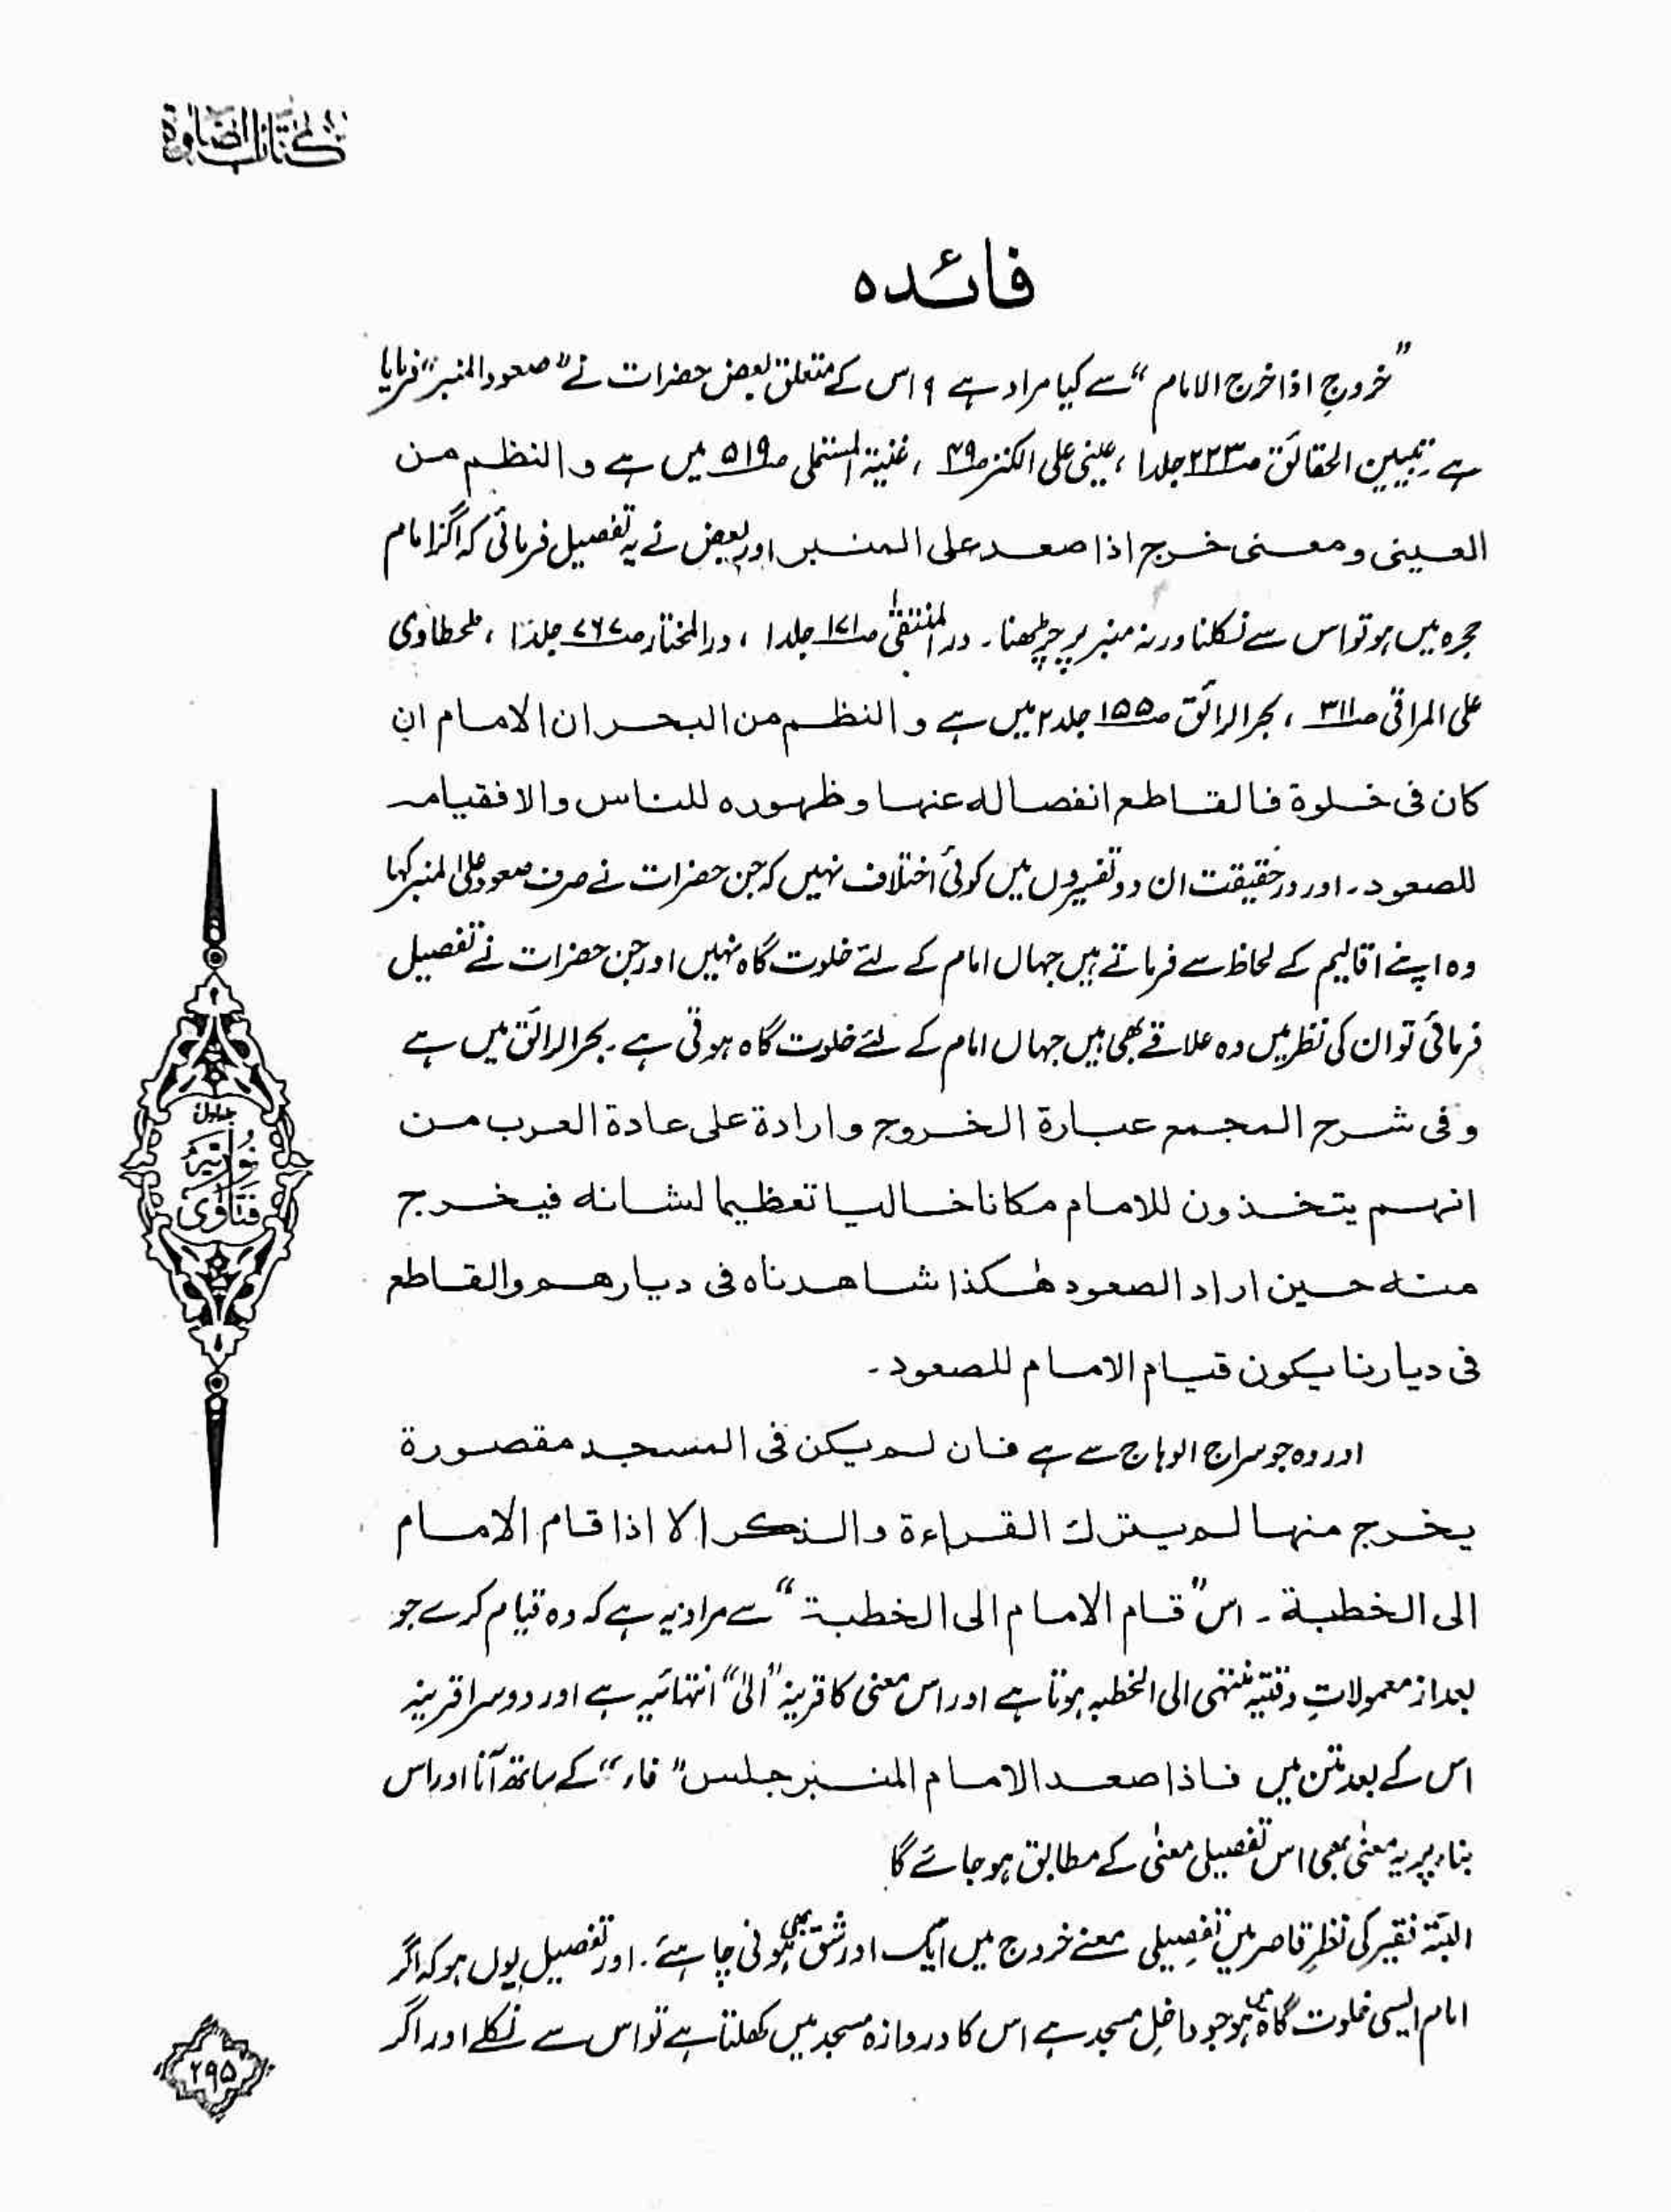 كتاب الصلوة
فائدہ
”خروجِ اذا خرج الامام“ سے کیا مراد ہے؟ اس کے متعلق بعض حضرات نے ”صعود المنبر“ فرمایا
ہے تبیین الحقائق صـ۲۲۳ جلد۱، عینی علی الکنز صـ۴۹، غنیۃ المستملی صـ۵۱۹ میں ہے و النظم من
العینی و معنی خرج اذا صعد علی المنبر اور بعض نے یہ تفصیل فرمائی کہ اگر امام
حجرہ میں ہو تو اس سے نکلنا ورنہ منبر پر چڑھنا۔ در المنتقیٰ صـ۱۷۱ جلد۱، در المختار صـ۷۶۷ جلد۱، طحطاوی
علی المراقی صـ۳۱۱، بحر الرائق صـ۱۵۵ جلد۲ میں ہے و النظم من البحر ان الامام ان
کان فی خلوة فالقاطع انفصاله عنها و ظهوره للناس والا فقیامه
للصعود۔ اور درحقیقت ان دو تفسیروں میں کوئی اختلاف نہیں کہ جن حضرات نے صرف صعود علی المنبر کہا
وہ اپنے اقالیم کے لحاظ سے فرماتے ہیں جہاں امام کے لئے خلوت گاہ نہیں اور جن حضرات نے تفصیل
فرمائی تو ان کی نظر میں وہ علاقے بھی ہیں جہاں امام کے لئے خلوت گاہ ہوتی ہے۔ بحر الرائق میں ہے
و فی شرح المجمع عبارة الخروج وارادة علی عادة العرب من
انهم یتخذون للامام مکانا خالیا تعظیما لشانه فیخرج
منه حین اراد الصعود هٰکذا شاهدناه فی دیارهم والقاطع
فی دیارنا یکون قیام الامام للصعود۔
اور وہ جو سراج الوہاج سے ہے فان لم یکن فی المسجد مقصورة
یخرج منها لم یترك القراءة والذکر الا اذا قام الامام
الی الخطبة۔ اس ”قام الامام الی الخطبة“ سے مراد یہ ہے کہ وہ قیام کرے جو
بعد از معمولاتِ وقتیہ منتہی الی الخطبہ ہوتا ہے اور اس معنی کا قرینہ ”الیٰ“ انتہائیہ ہے اور دوسرا قرینہ
اس کے بعد متن میں فاذا صعد الامام المنبر جلس ”فاء“ کے ساتھ آنا اور اس
بناء پر یہ معنیٰ بھی اس تفصیلی معنیٰ کے مطابق ہو جائے گا
البتہ فقیر کی نظرِ قاصر میں تفصیلی معنے خروج میں ایک اور شق بھی ہونی چاہئے۔ اور تفصیل یوں ہو کہ اگر
امام ایسی خلوت گاہ میں ہو جو داخلِ مسجد ہے اس کا دروازہ مسجد میں کھلتا ہے تو اس سے نکلے اور اگر
جلد اول
نُوریّہ
فتاوٰی
۲۹۵